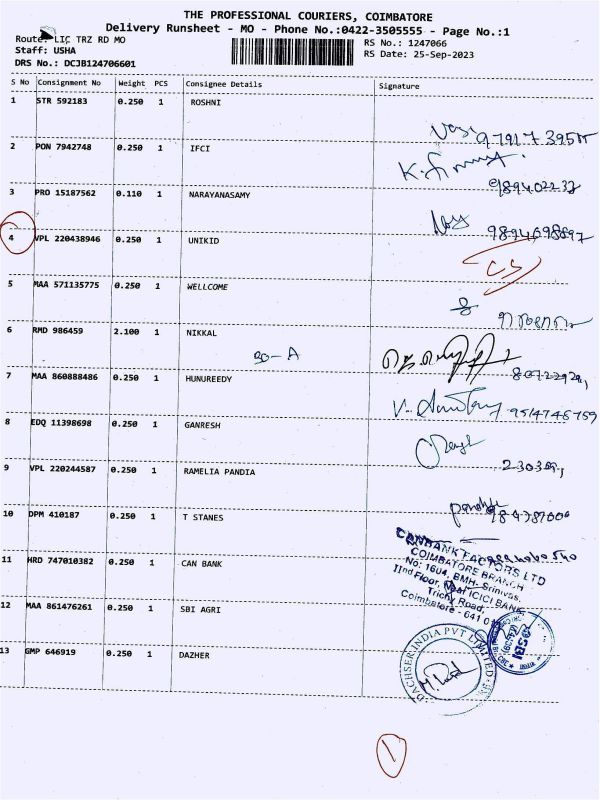 THE PROFESSIONAL COURIERS, COIMBATORE
Delivery Runsheet - MO - Phone No.:0422-3505555 - Page No.:1
Route: LIC TRZ RD MO
RS No.: 1247066
Staff: USHA
RS Date: 25-Sep-2023
DRS No.: DCJB124706601
S No Consignment No Weight PCS Consignee Details Signature
1 STR 592183 0.250 1 ROSHNI
2 PON 7942748 0.250 1 IFCI
3 PRO 15187562 0.110 1 NARAYANASAMY
4 VPL 220438946 0.250 1 UNIKID
9894698897
5 MAA 571135775 0.250 1 WELLCOME
6 RMD 986459 2.100 1 NIKKAL
7 MAA 860888486 0.250 1 HUNUREEDY
9514746759
8 EDQ 11398698 0.250 1 GANRESH
9 VPL 220244587 0.250 1 RAMELIA PANDIA
10 DPM 410187 0.250 1 T STANES
11 HRD 747010382 0.250 1 CAN BANK
CANBANK FACTORS LTD
COIMBATORE BRANCH
No: 1604, BMH. Srinivas,
IInd Floor, Near ICICI BANK
Trichy Road,
Coimbatore - 641 0
12 MAA 861476261 0.250 1 SBI AGRI
SBI
13 GMP 646919 0.250 1 DAZHER
DACHSER INDIA PVT LIMITED
1